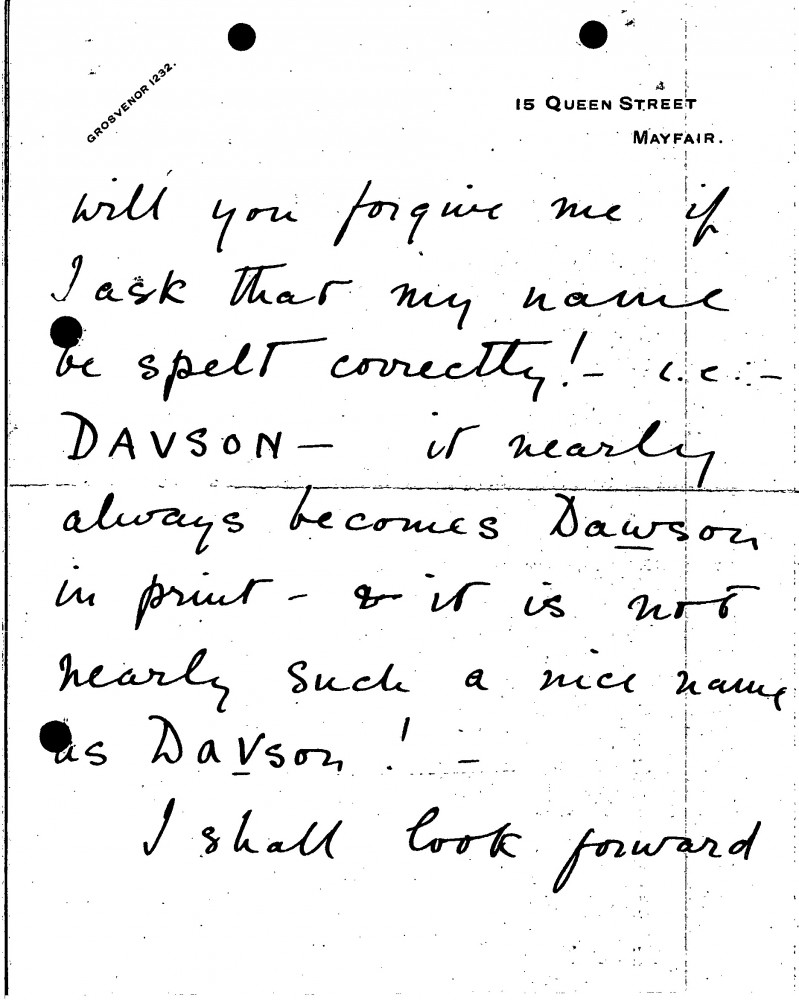 GROSVENOR 1232.
15 QUEEN STREET
MAYFAIR.
will you forgive me if
I ask that my name
be spelt correctly! - i.e. -
DAVSON - it nearly
always becomes Dawson
in print - & it is not
nearly such a nice name
as DaVson! -
I shall look forward